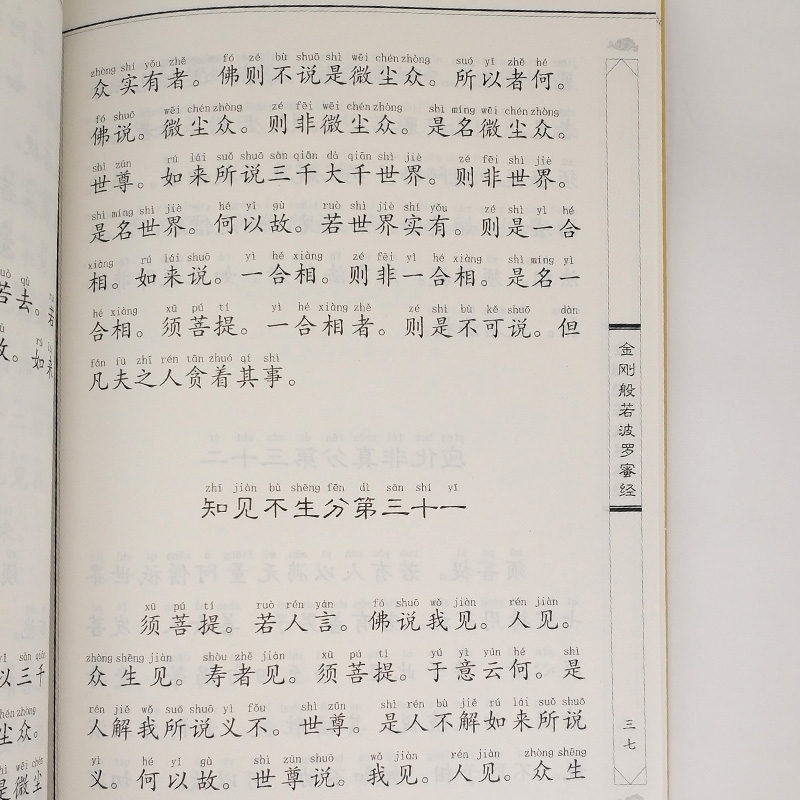 zhòng shí yǒu zhě fó zé bù shuō shì wēi chén zhòng suó yǐ zhě hé
众实有者。佛则不说是微尘众。所以者何。
fó shuō wēi chén zhòng zé fēi wēi chén zhòng shì míng wēi chén zhòng
佛说。微尘众。则非微尘众。是名微尘众。
shì zūn rú lái suǒ shuō sān qiān dà qiān shì jiè zé fēi shì jiè
世尊。如来所说三千大千世界。则非世界。
shì míng shì jiè hé yǐ gù ruò shì jiè shí yǒu zé shì yì hé
是名世界。何以故。若世界实有。则是一合
xiàng rú lái shuō yì hé xiàng zé fēi yì hé xiàng shì míng yì
相。如来说。一合相。则非一合相。是名一
hé xiàng xū pú tí yì hé xiàng zhě zé shì bù kě shuō dàn
合相。须菩提。一合相者。则是不可说。但
fán fū zhī rén tān zhuó qí shì
凡夫之人贪着其事。
zhī jiàn bù shēng fēn dì sān shí yī
知见不生分第三十一
xū pú tí ruò rén yán fó shuō wǒ jiàn rén jiàn
须菩提。若人言。佛说我见。人见。
zhòng shēng jiàn shòu zhě jiàn xū pú tí yú yì yún hé shì
众生见。寿者见。须菩提。于意云何。是
rén jiě wǒ suǒ shuō yì fǒu shì zūn shì rén bù jiě rú lái suǒ shuō
人解我所说义不。世尊。是人不解如来所说
yì hé yǐ gù shì zūn shuō wǒ jiàn rén jiàn zhòng shēng
义。何以故。世尊说。我见。人见。众生
金刚般若波罗蜜经
三七
若去。若
故。如来
以三千
尘众。
是微尘